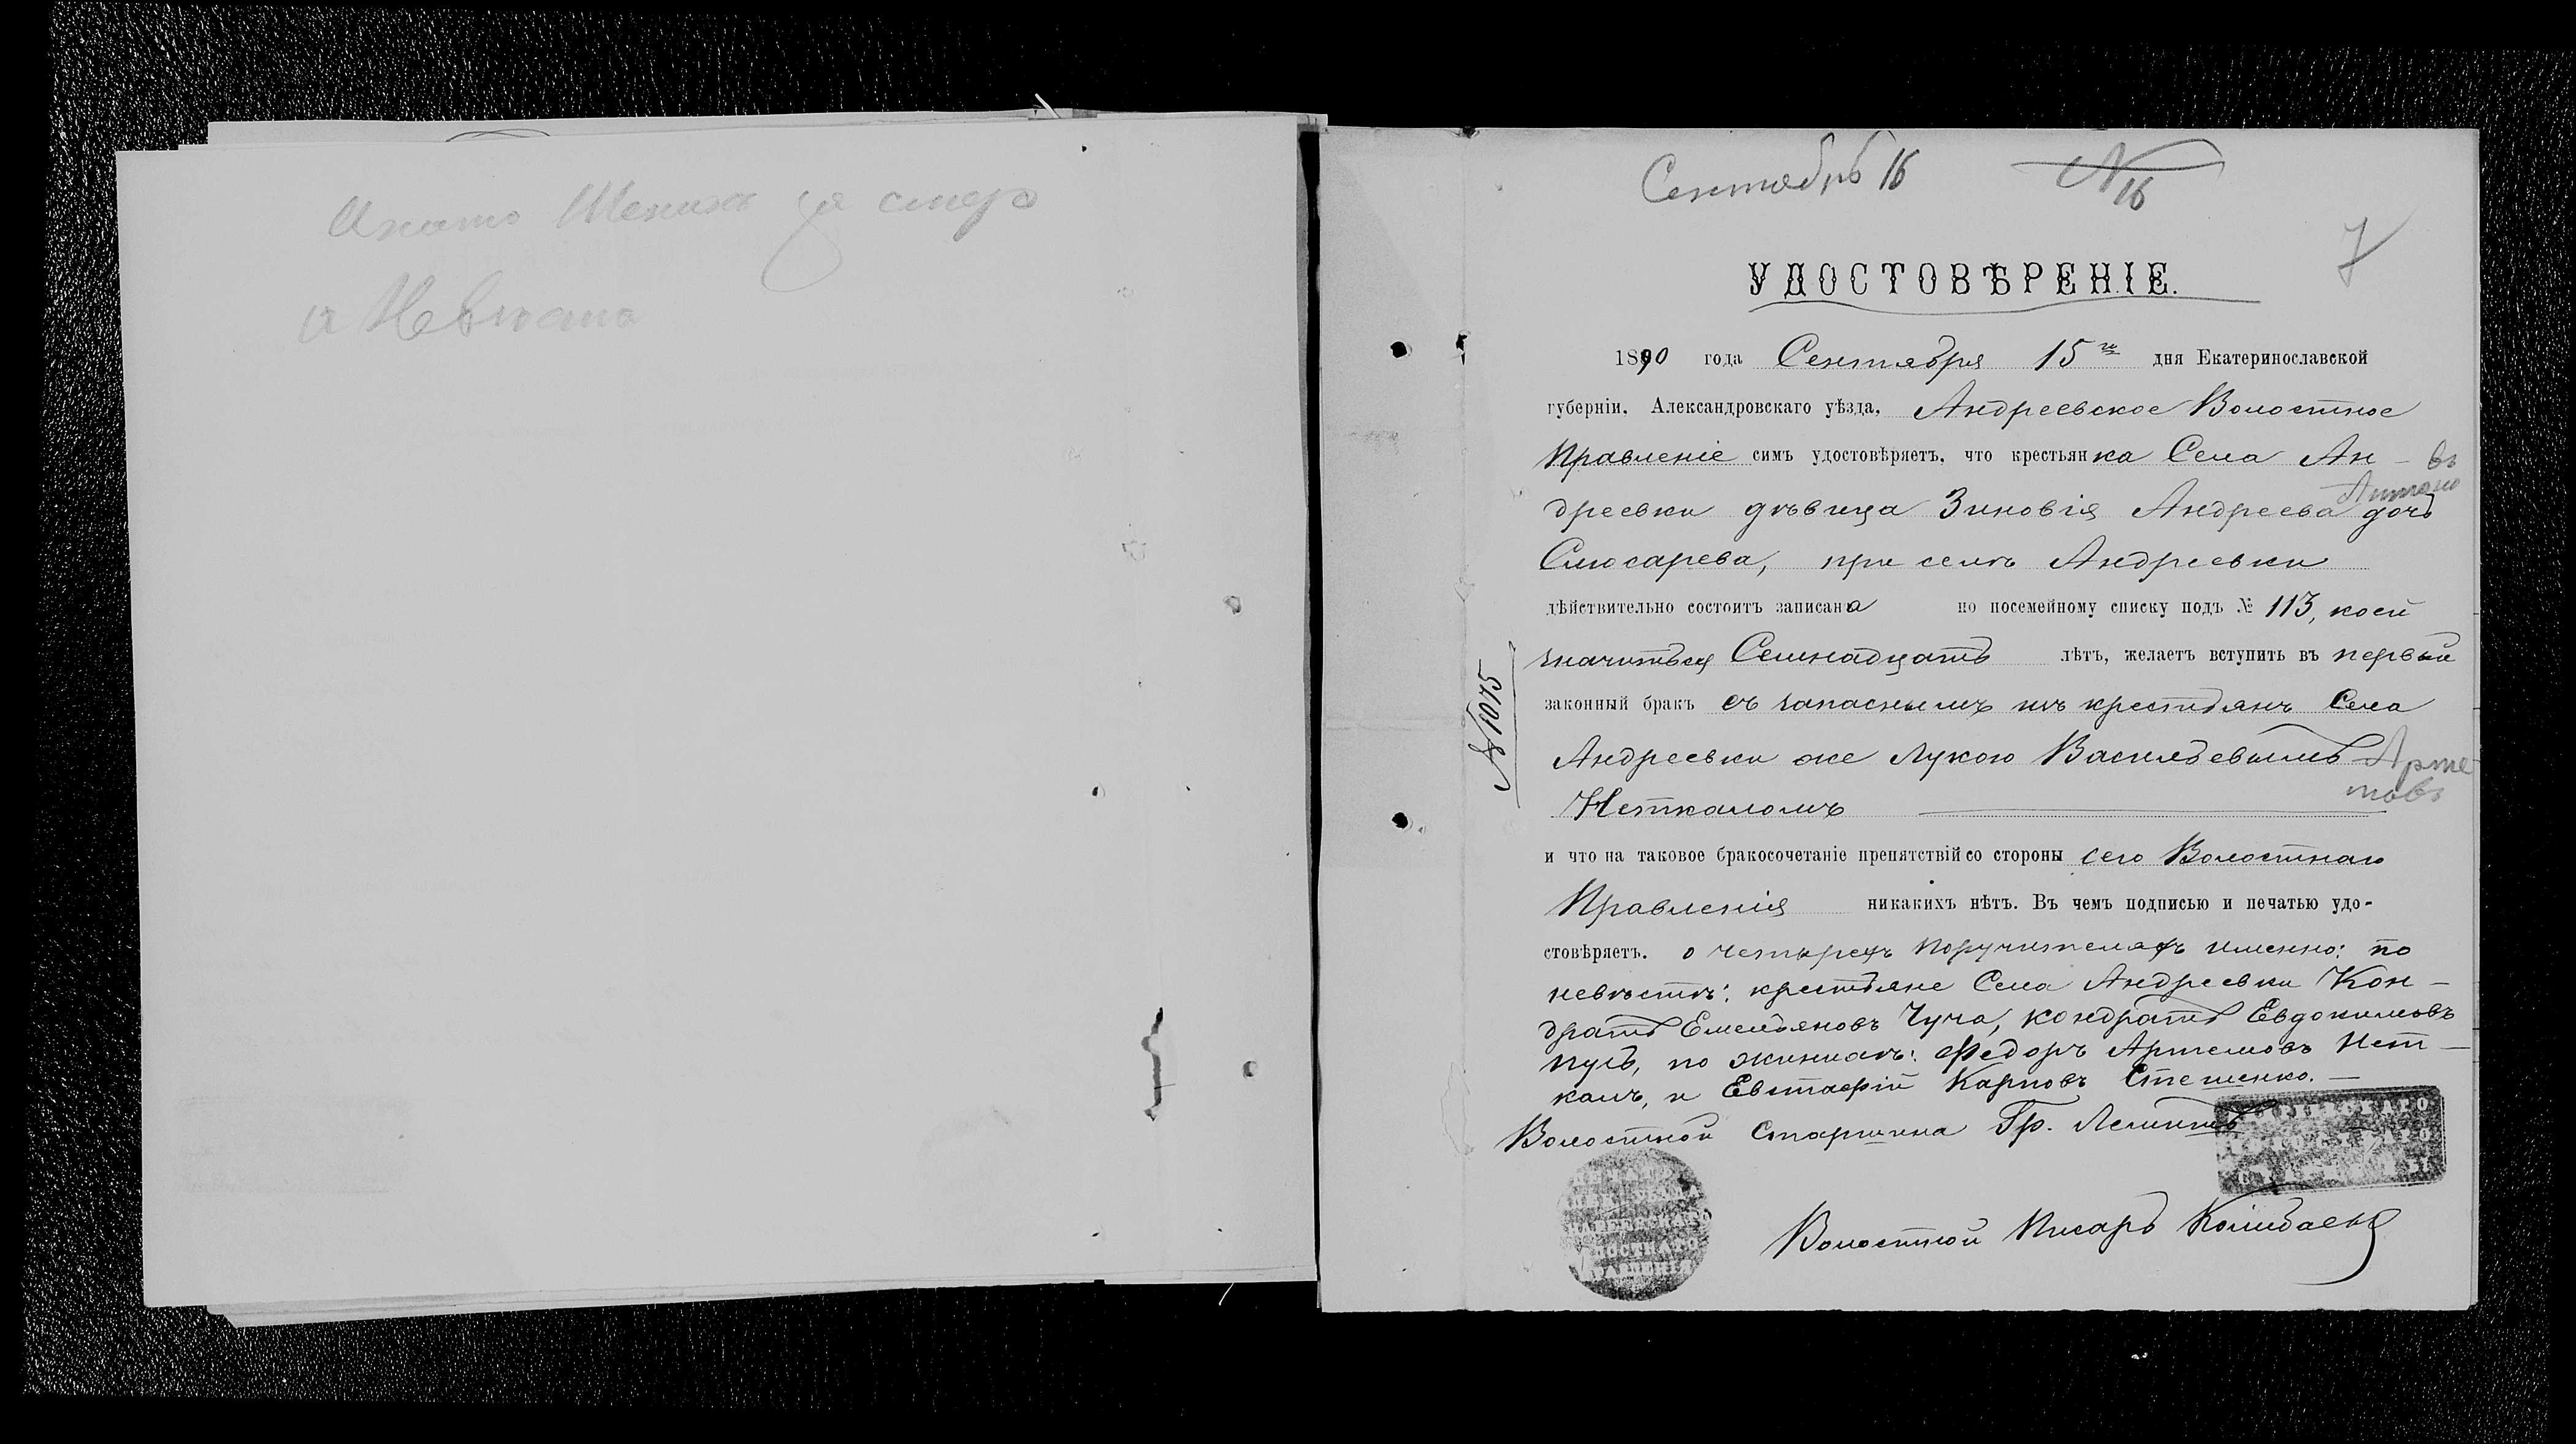 Сентябрь 16 N 16
7
УДОСТОВѢРЕНІЕ.
1890 года Сентября 15го дня Екатеринославской
губерніи, Александровскаго уѣзда, Андреевское Волостное
Правленіе симъ удостовѣряетъ, что крестьянка Села Ан-
дреевки дѣвица Зиновія Андреева дочь
Слюсарева, при селѣ Андреевки
дѣйствительно состоитъ записана по посемейному списку подъ № 113, коей
значиться Семнадцать лѣтъ, желаетъ вступить въ первый
законный бракъ съ запаснымъ изъ крестьянъ Села
Андреевки же Лукою Васильевымъ Арте
мовъ
Неткаломъ
и что на таковое бракосочетаніе препятствій со стороны сего Волостнаго
Правленія никакихъ нѣтъ. Въ чемъ подписью и печатью удо-
стовѣряетъ. о четырехъ поручителяхъ именно: по
невѣстѣ: крестьяне Села Андреевки Кон-
дратъ Емельяновъ Чуча, Кондратъ Евдокимовъ
Пуль, по жинихѣ: Федоръ Артемовъ Нет-
калъ, и Евстафій Карповъ Стешенко.
Волостной Старшина Гр.
Волостной Писарь
№ 1075